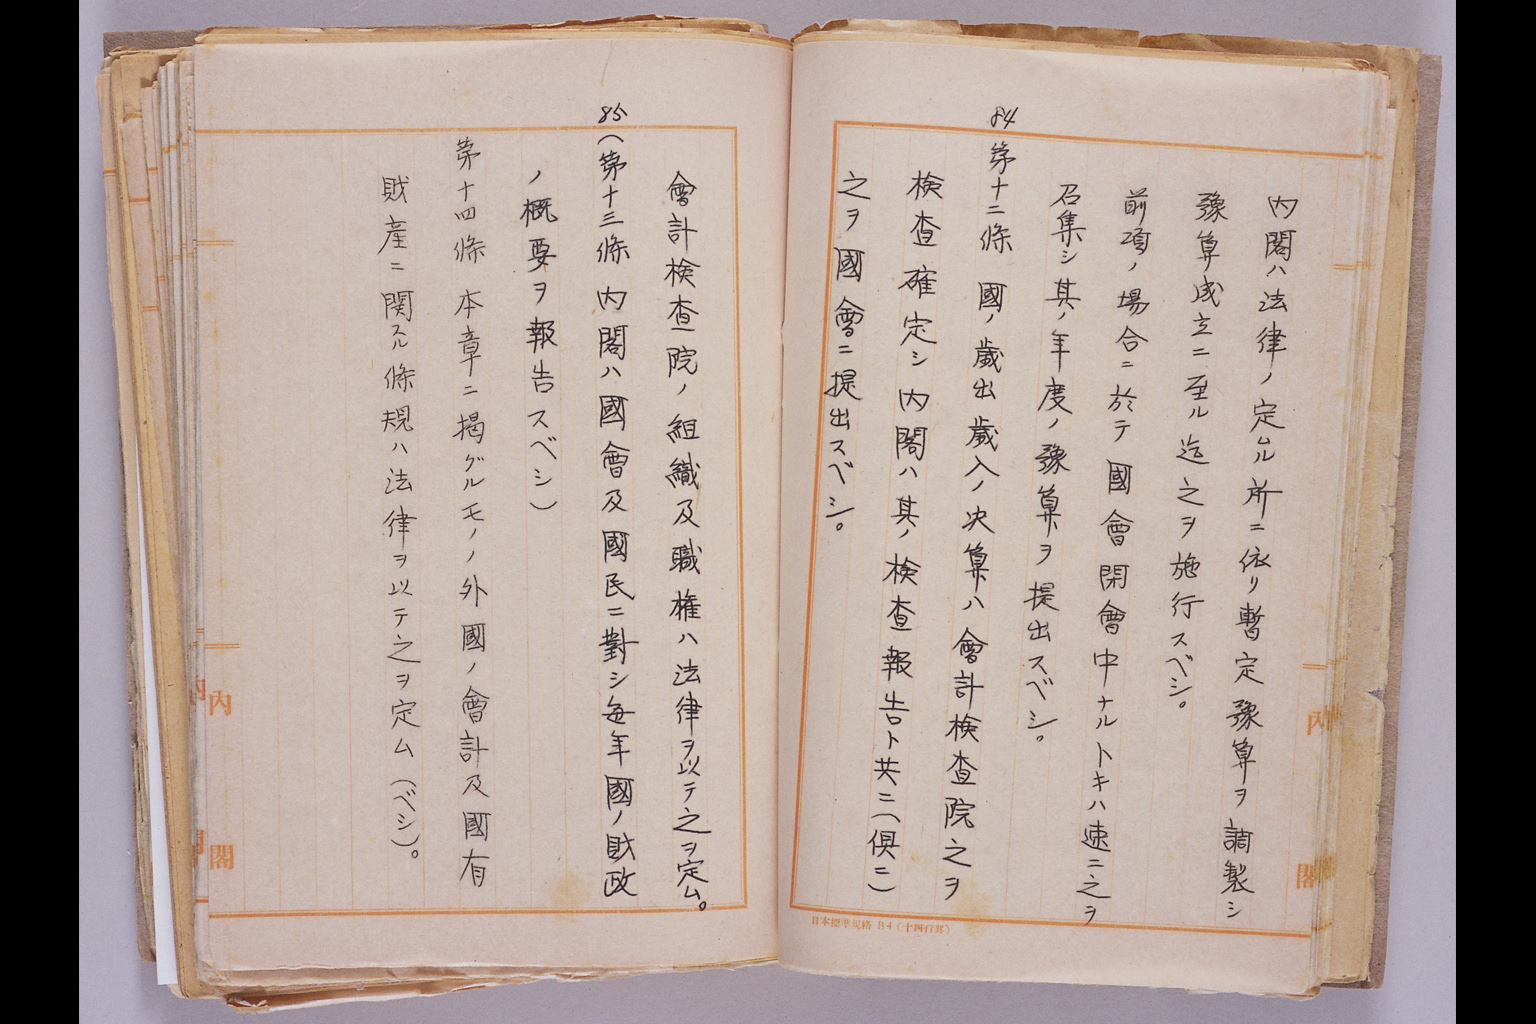 内閣ハ法律ノ定ムル所ニ依リ暫定豫算ヲ調製シ
豫算成立ニ至ル迄之ヲ施行スベシ。
前項ノ場合ニ於テ國會閉會中ナルトキハ速ニ之ヲ
召集シ其ノ年度ノ豫算ヲ提出スベシ。
84
第十二條 國ノ歳出歳入ノ決算ハ會計検査院之ヲ
検査確定シ内閣ハ其ノ検査報告ト共ニ(倶ニ)
之ヲ國會ニ提出スベシ。
日本標準規格B4(十四行罫)
會計検査院ノ組織及職権ハ法律ヲ以テ之ヲ定ム。
85
(第十三條 内閣ハ國會及國民ニ對シ毎年國ノ財政
ノ概要ヲ報告スベシ)
第十四條 本章ニ掲グルモノノ外國ノ會計及國有
財産ニ関スル條規ハ法律ヲ以テ之ヲ定ム(ベシ)。
内閣